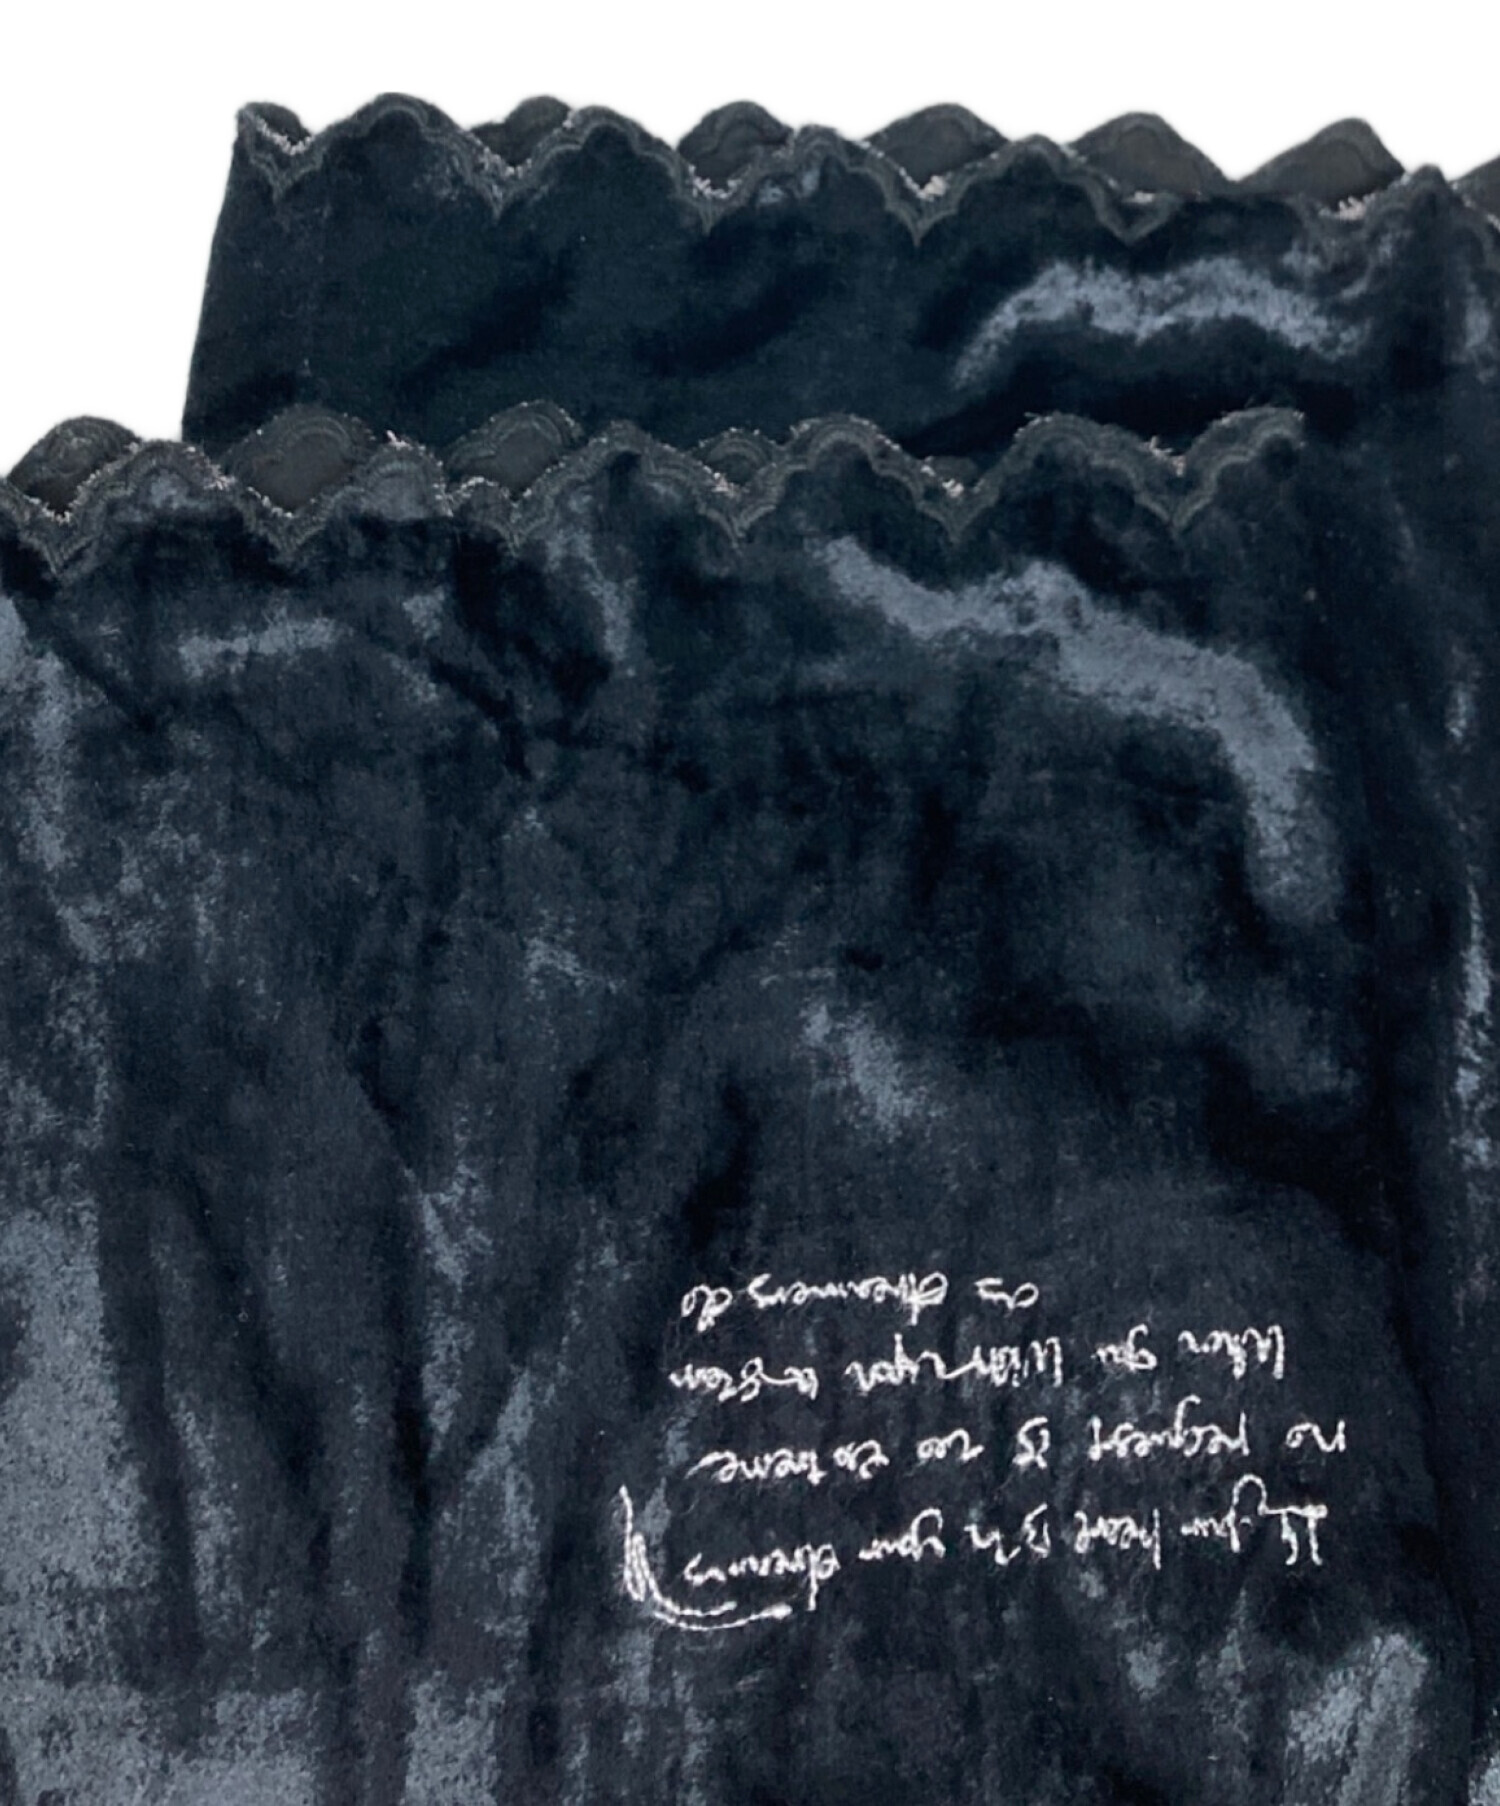 If your heart is in your dreams
no request is too extreme
When you wish upon a star
as dreamers do